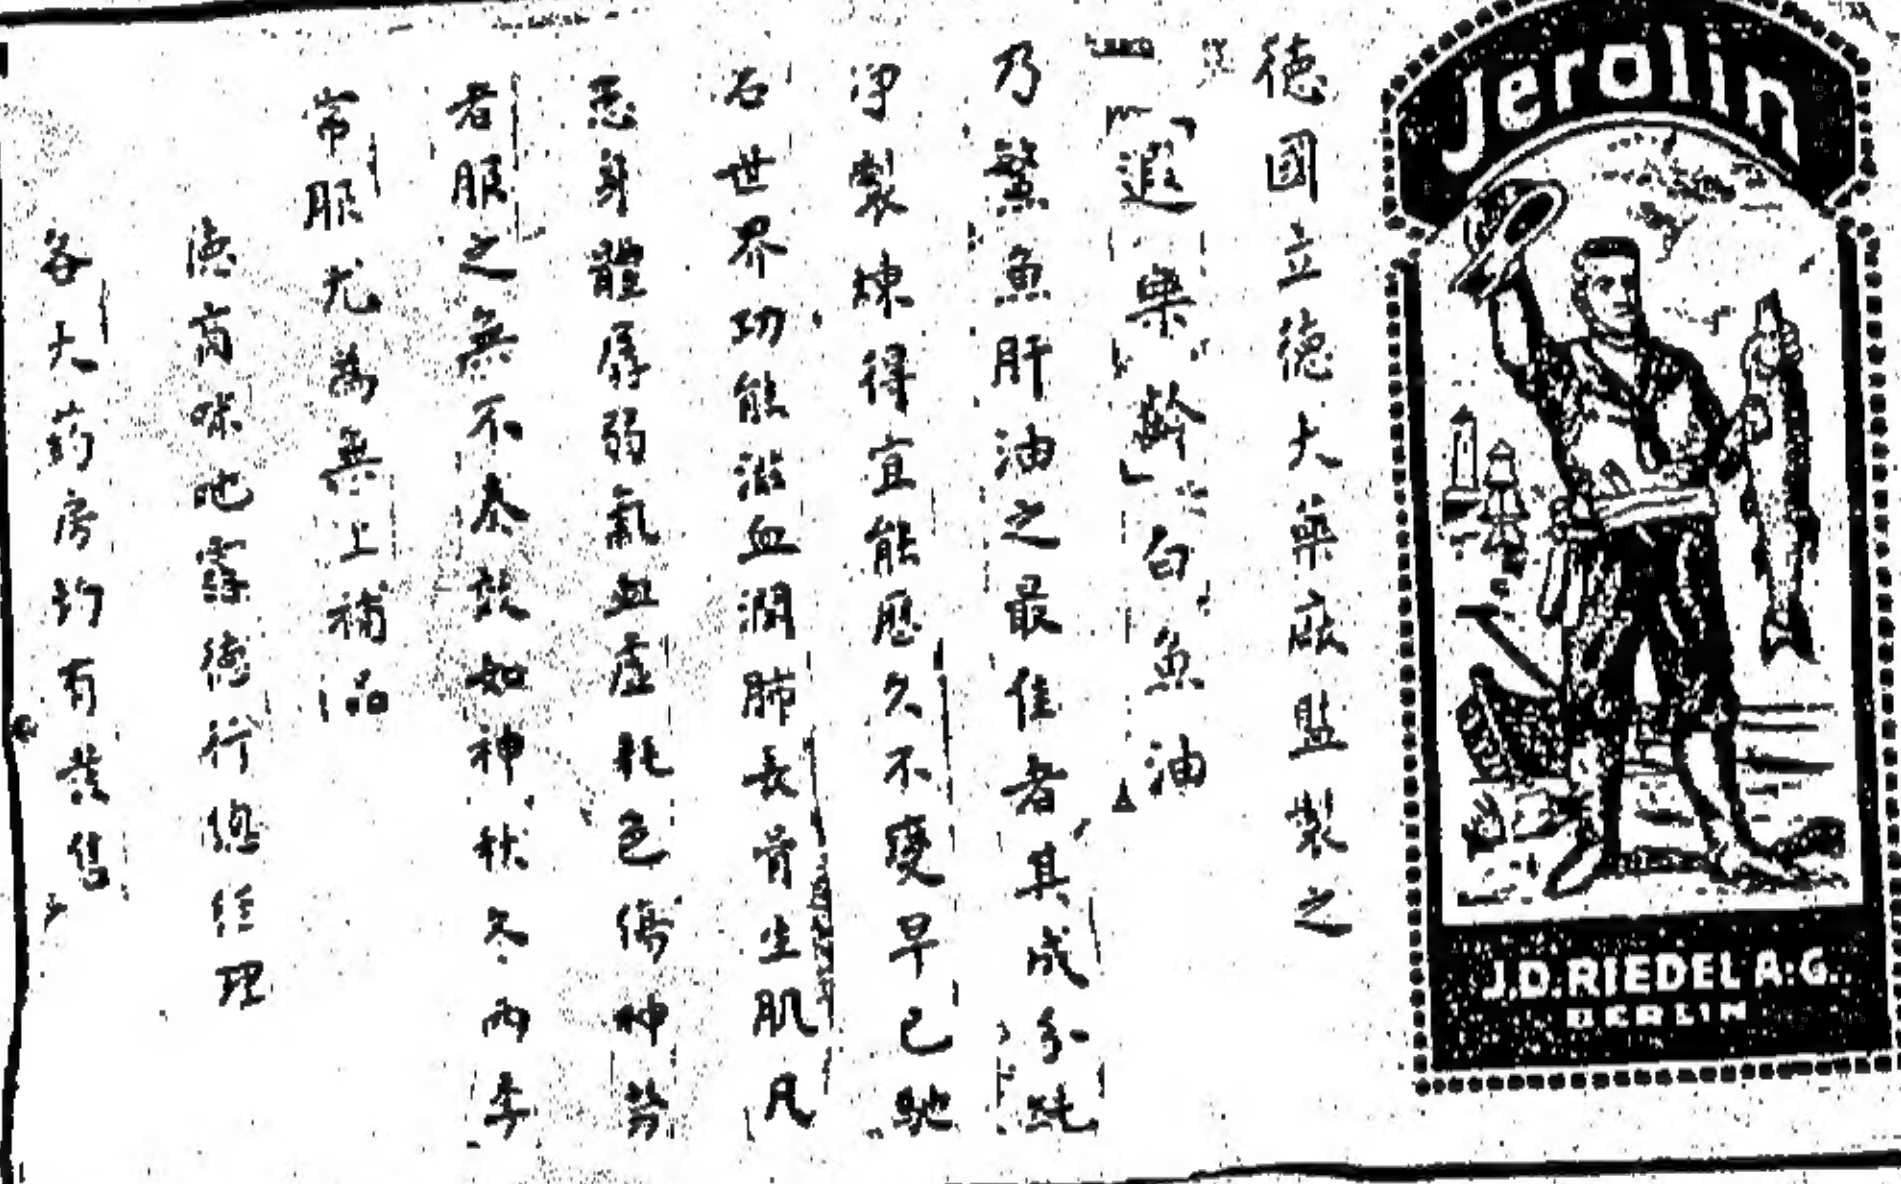 Jerolin
J.D. RIEDEL A.G.
BERLIN
德國立德大藥廠監製之
「遐樂齡」白魚油
乃鱉魚肝油之最佳者其成分純
净製煉得宜能歷久不變早已馳
名世界功能滋血潤肺長骨生肌凡
患身體孱弱氣血虛耗色傷神勞
者服之無不奏效如神秋冬兩季
常服尤為無上補品
德商咪吔 德行總經理
各大药房均有發售